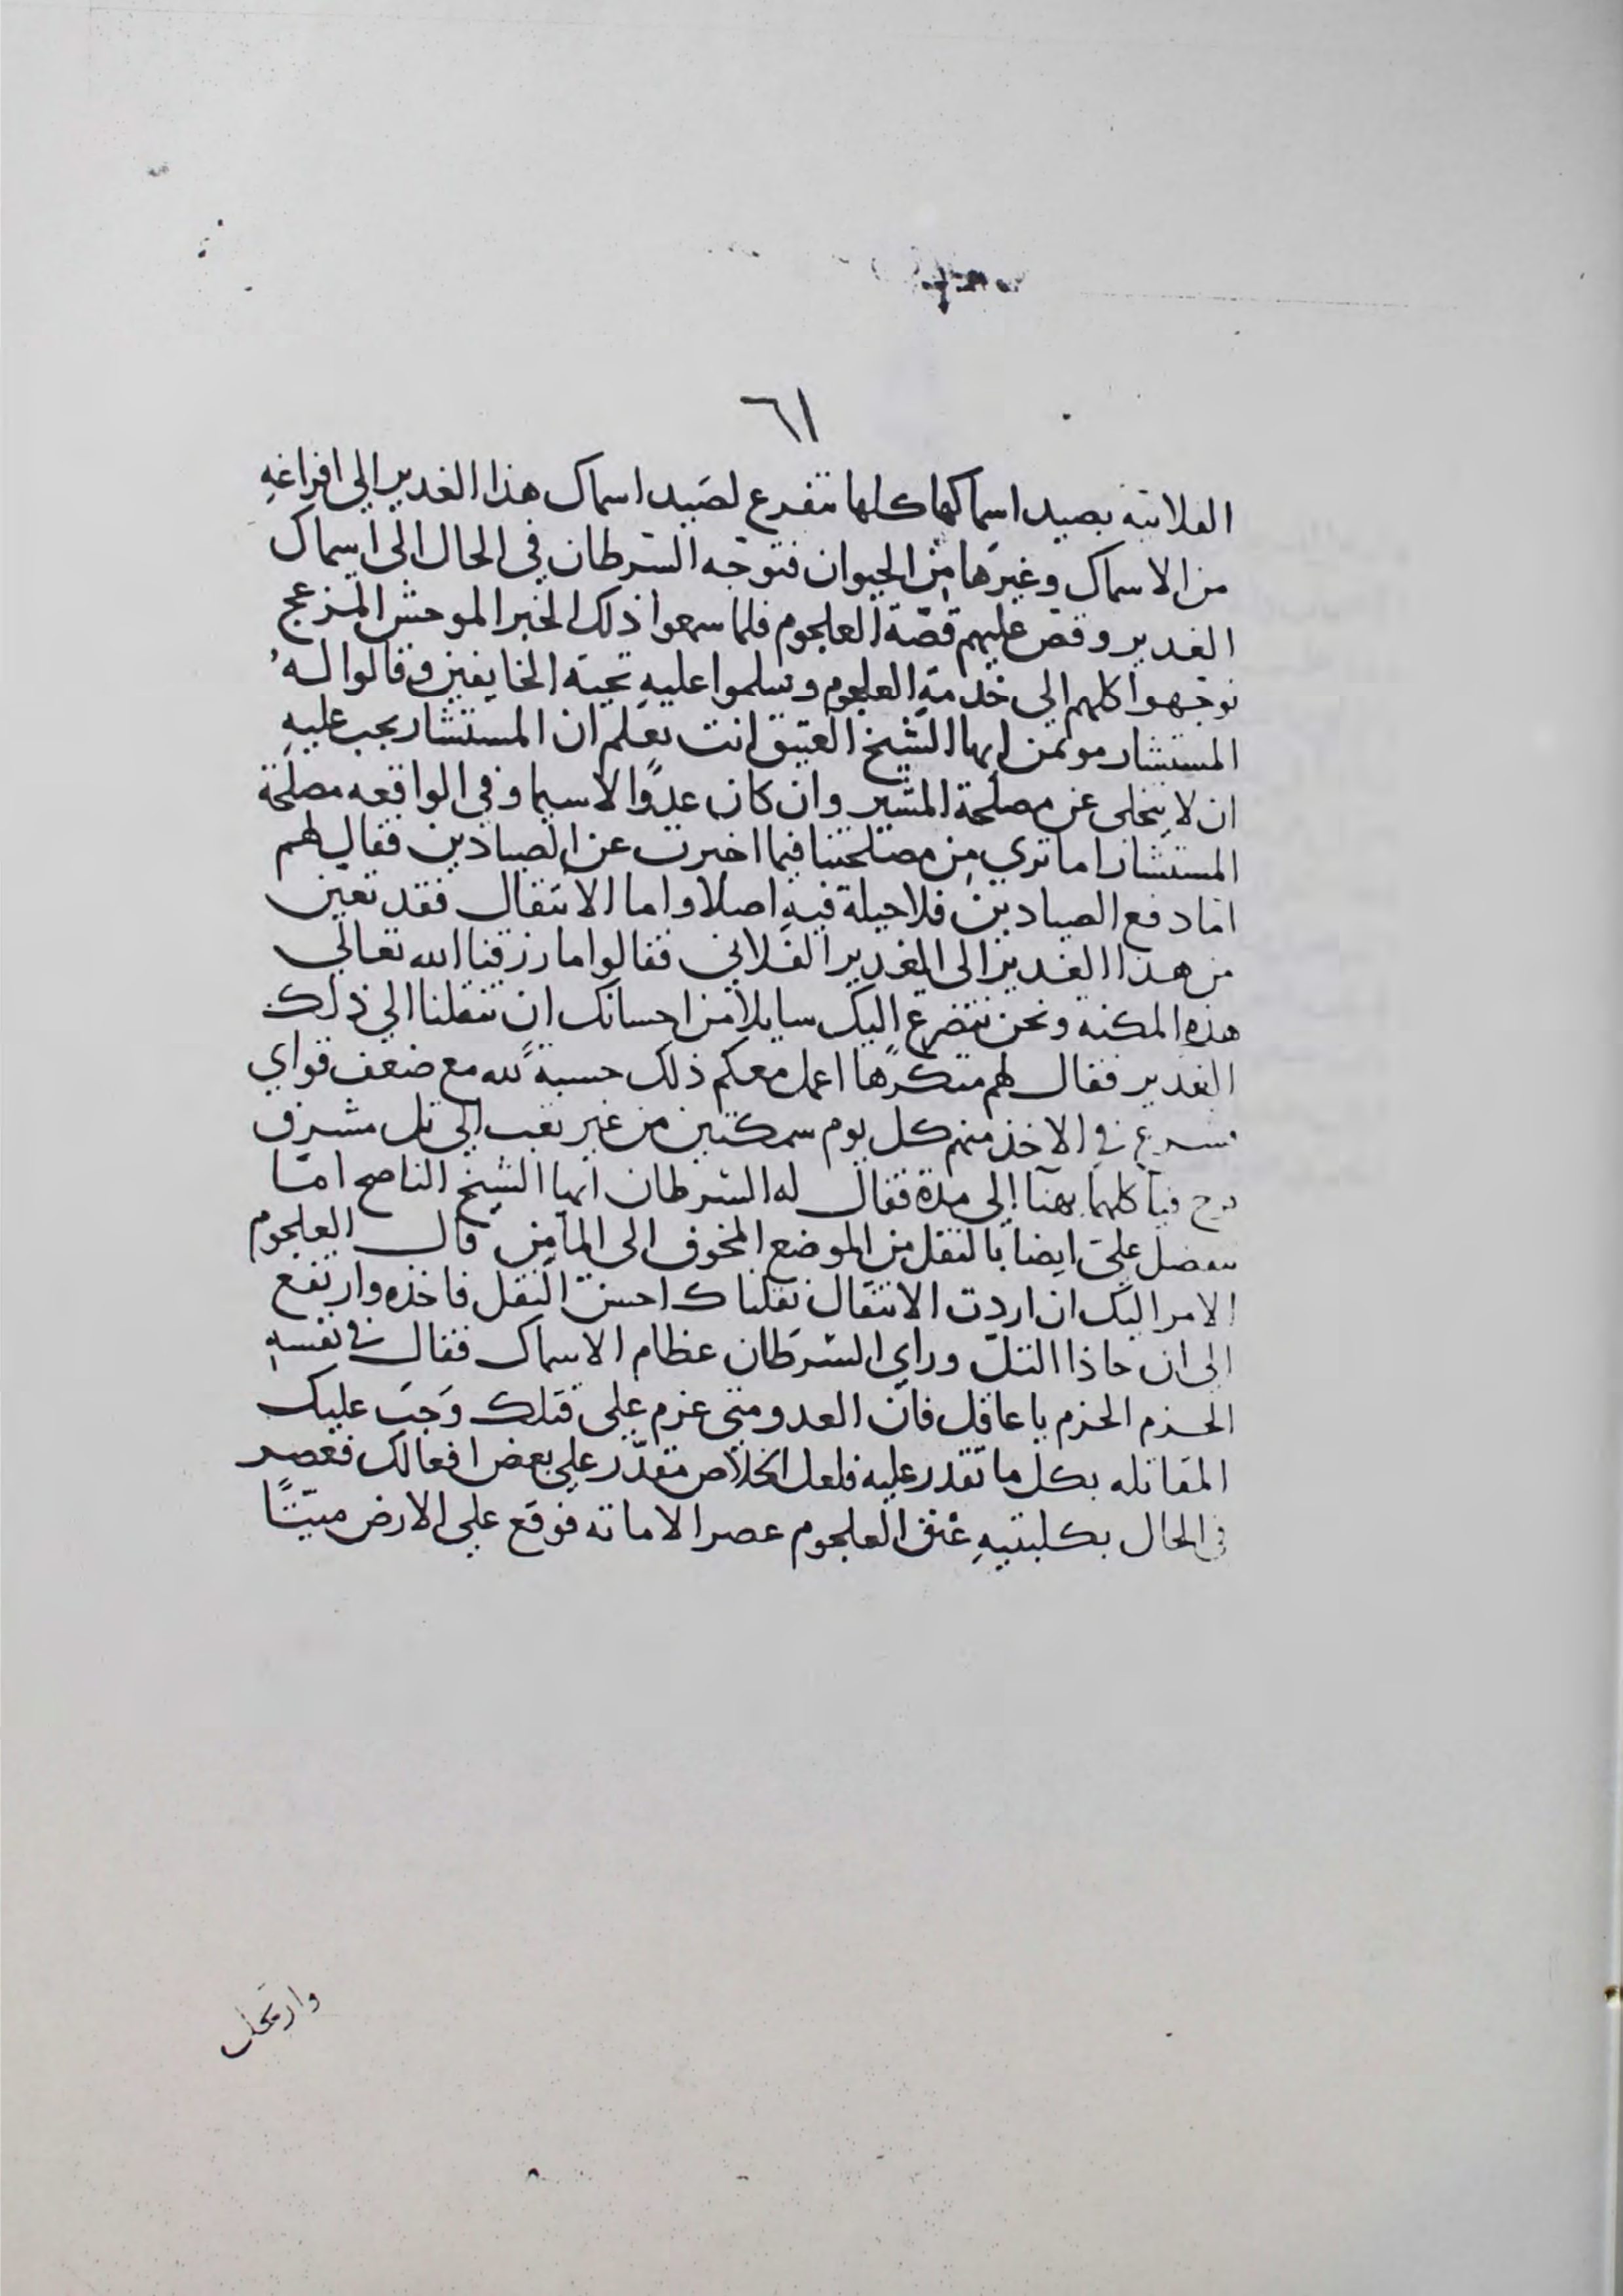 ٦١
الفلانيه بصيد اسماكها كلها نتفرع لصَيد اسماك هذا الغدير الى افراغهِ
من الاسماك وغيرَها من الحيوان فتوجه السرطان في الحال الى اسماك
الغدير وقص عليهم قصّة العلجوم فلما سمعوا ذلك الخبر الموحش المزعج
توجهوا كلهم الى خدمةِ العلجوم وسلموا عليهِ تحية الخايفين وقالوا لهُ
المستشار موتمن ايها الشيخ العتيق انت تعلم ان المستشار يجب عليهِ
ان لا يتخلى عن مصلحة المشير وان كان عدوًا لاسيما وفي الواقعه مصلحة
المستشار اما تري من مصلحتنا فيما اخبرت عن الصيادين فقال لهم
امّا دفع الصيادين فلا حيلة فيهِ اصلا واما الانتقال فقد تعين
من هذا الغدير الى الغدير الفلاني فقالوا ما رزقنا الله تعالي
هذهِ المكنه ونحن نتضرع اليك سايلا من احسانك ان تنقلنا الي ذلك
الغدير فقال لهم متكرّها اعمل معكم ذلك حسبةً لله مع ضعف قواي
فشرع في الاخذ منهم كل يوم سمكتين من غير تعب الي تل مشرف
فياكلهما بهنا الى مدة فقال له السرطان ايها الشيخ الناصح امّا
تتفضل عليّ ايضاً بالنقل من الموضع المخوف الى المأمن قال العلجوم
الامر اليك ان اردت الانتقال نقلناك احسن النقل فاخذه وارتفع
الى ان حاذا التلّ وراي السّرَطان عظام الاسماك فقال في نفسهِ
الحزم الحزم يا عاقل فانّ العدو متى عزم على قتلك وَجَبَ عليك
المقاتله بكل ما تقدر عليه فلعل الخلاص مقدّر على بعض افعالك فعصر
في الحال بكلبتيهِ عنق العلجوم عصرا لاماته فوقع على الارض ميّتًا
وارتحل